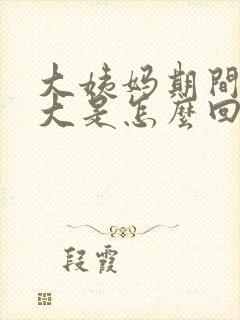 大姨妈期間
大是怎麼回
段霞